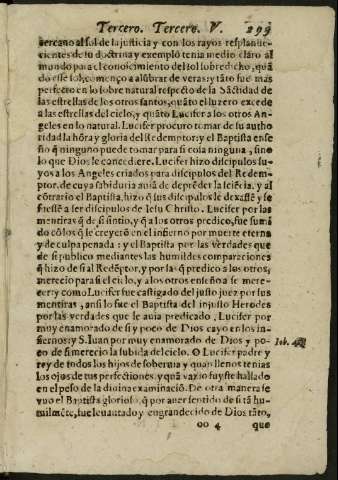 Tercero. Tercero. V. 299
cercano al sol de la justicia y con los rayos resplande-
cientes de tu doctrina y exemplo tenia medio claro al
mundo para el conoscimiento del sol sobredicho, quã
do esse sol començo a alũbrar de veras: y tãto fue mas
perfecto en lo sobre natural respecto de la Sãctidad de
las estrellas de los otros santos, quãto el luzero excede
a las estrellas del cielo, y quãto Lucifer a los otros An-
geles en lo natural. Lucifer procuro tomar de su autho-
ridad la hõra y gloria del Redemptor: y el Baptista ense
ño q̃ ninguno puede tomar para si cosa ninguna, sino
lo que Dios le concediere. Lucifer hizo discipulos su-
yos a los Angeles criados para discipulos del Redem-
ptor. de cuya sabiduria auiã de deprẽder la sciẽcia. y al
cõtrario el Baptista, hizo q̃ sus discipulos le dexassẽ y se
fuessẽ a ser discipulos de Iesu Christo. Lucifer por las
mentiras q̃ de si sintio, y q̃ a los otros predico, fue sumi
do cõ los q̃ le creyerõ en el infierno por muerte eterna
y de culpa penada: y el Baptista por las verdades que
de si publico mediantes las humildes comparaciones
q̃ hizo de si al Redẽptor, y por las q̃ predico a los otros,
merecio para si el cielo, y a los otros enseño a se mere-
cer: y como Lucifer fue castigado del justo juez por sus
mentiras, ansi lo fue el Baptista del injusto Herodes
por las verdades que le auia predicado. Lucifer por
muy enamorado de si y poco de Dios cayo en los in-
fiernos: y S. Iuan por muy enamorado de Dios y po-
co de si merecio la subida del cielo. O Lucifer padre y
rey de todos los hijos de soberuia y quan llenos tenias
los ojos de tus perfectiones, y quã vazio fuyste hallado
en el peso de la diuina examinaciõ. De otra manera se
vuo el Baptista glorioso, q̃ por auer sentido de si tã hu-
milmẽte, fue leuantado y engrandecido de Dios tãto,
Iob. 41
oo 4 que